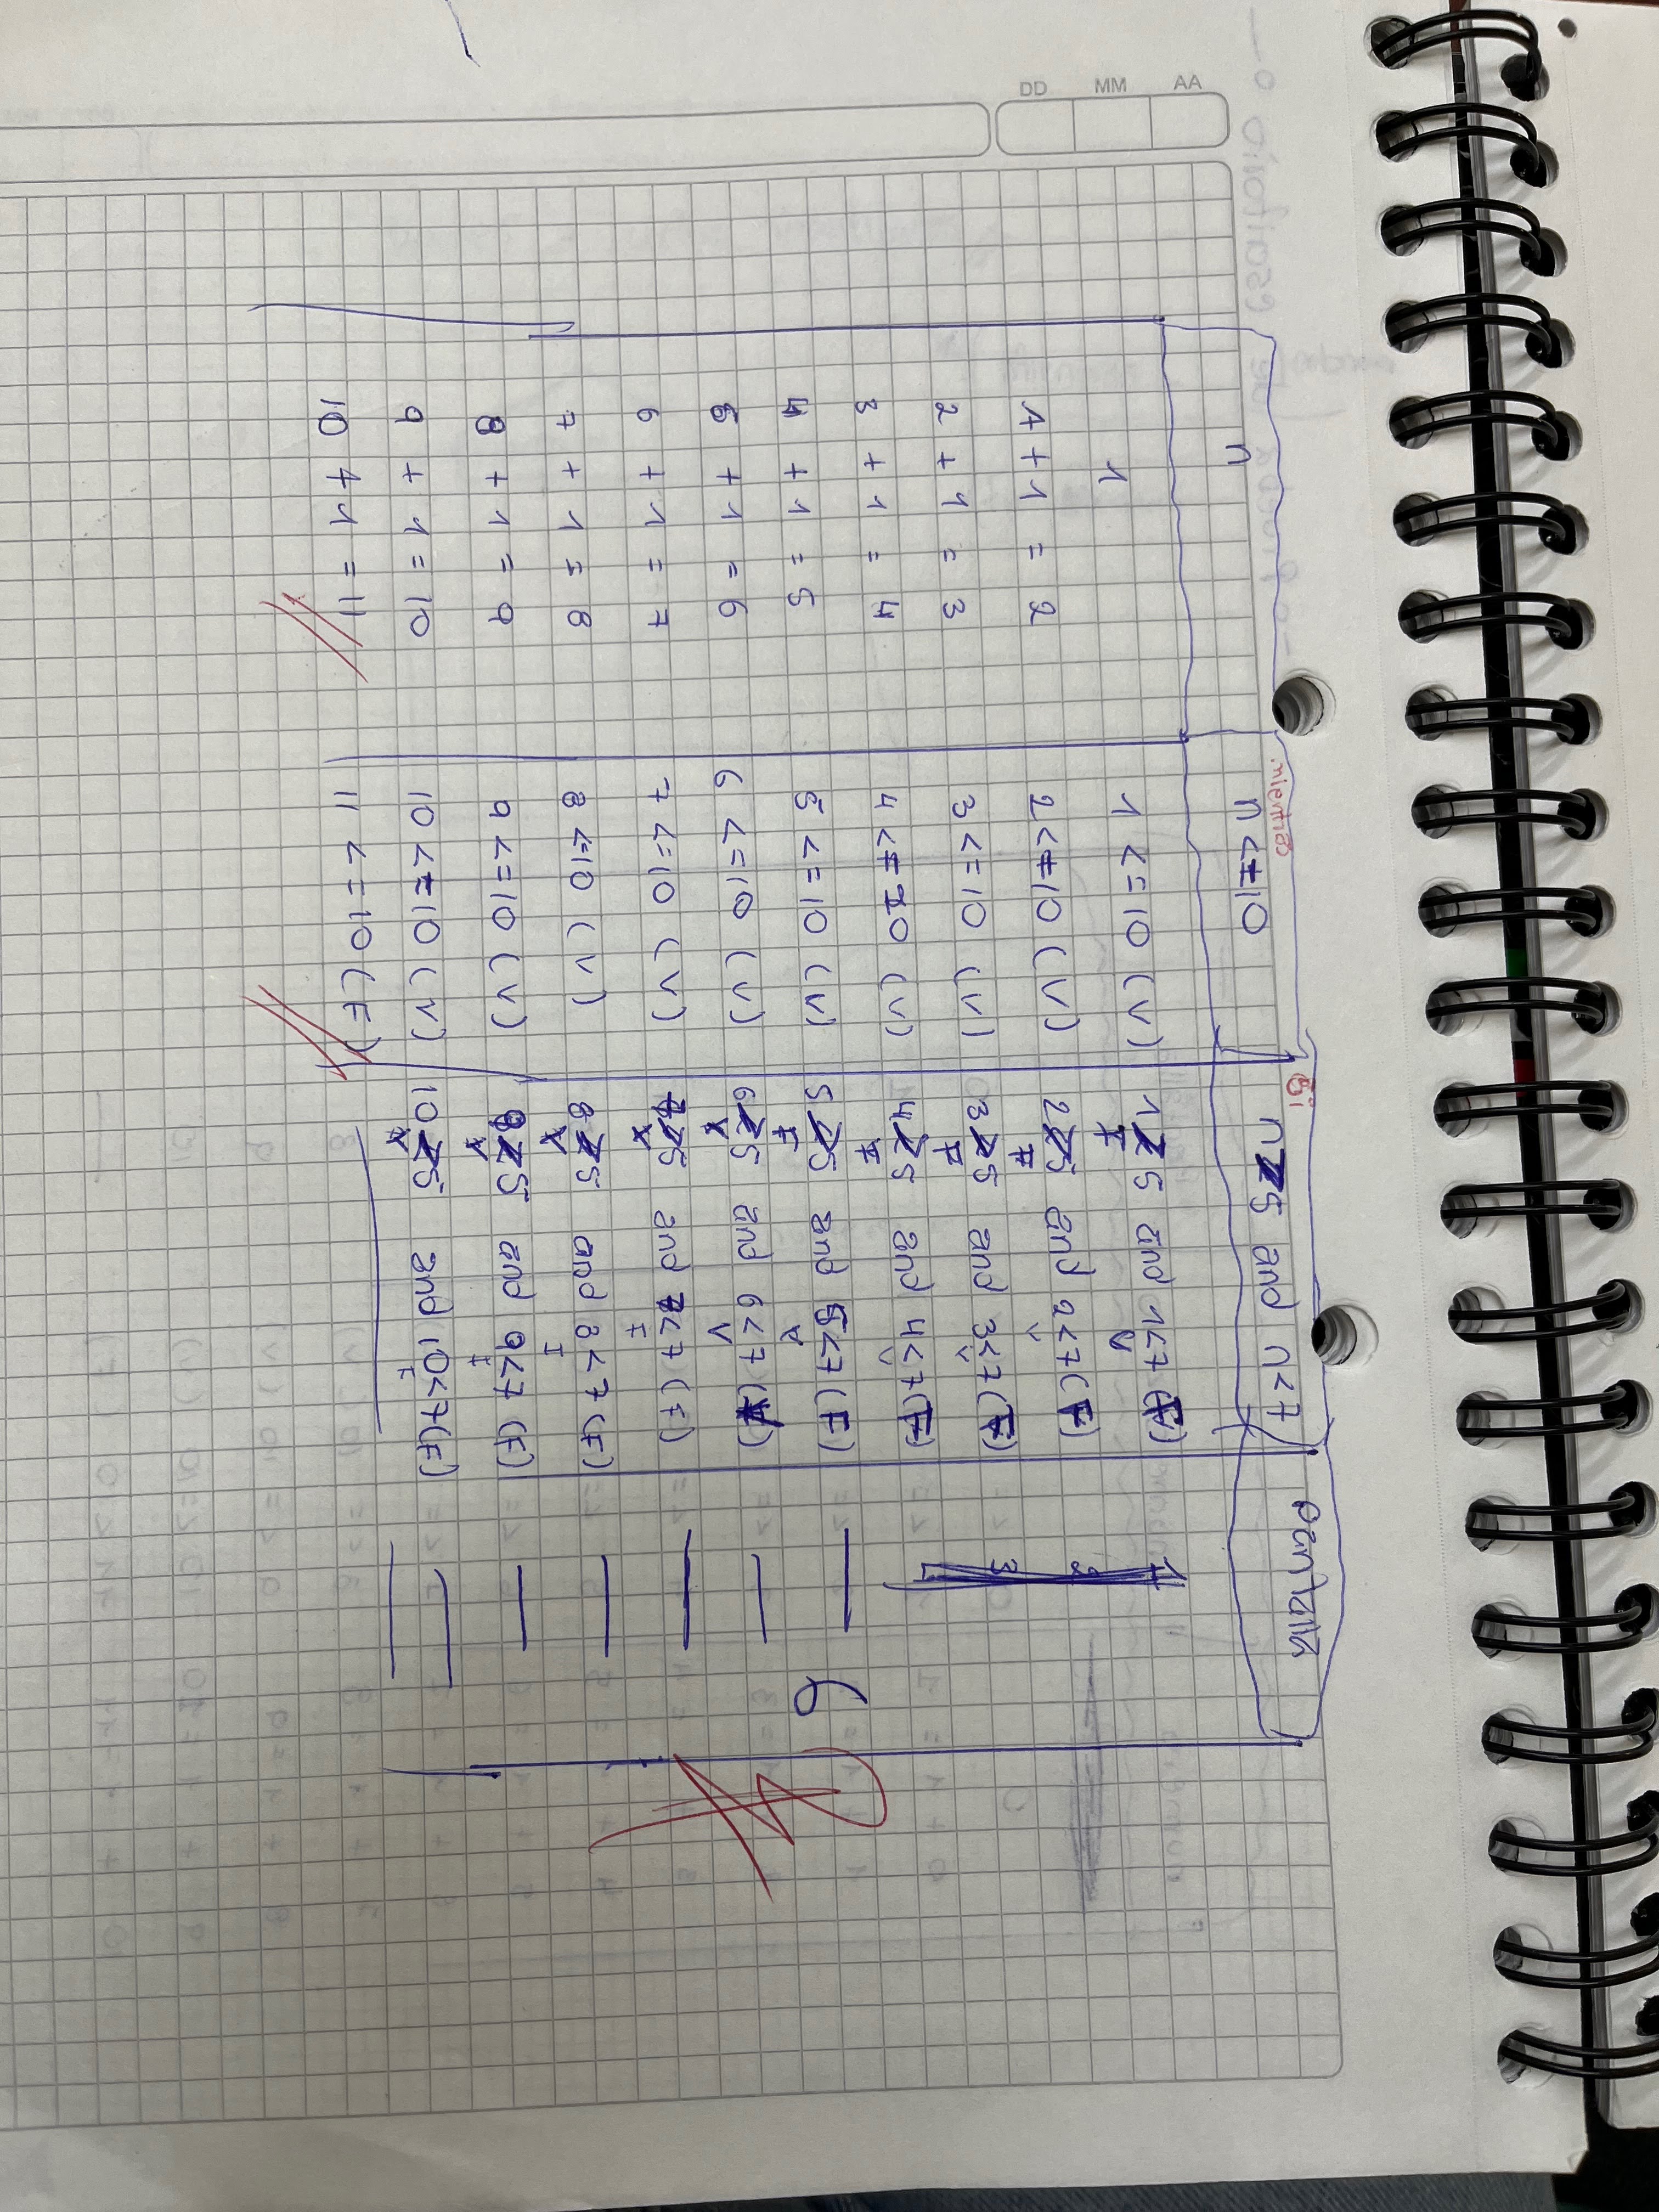 DD MM AA
mientras si
n n<=10 n>5 and n<7 pantalla
1 1<=10 (V) 1>5 and 1<7 (F)
F V
1+1 = 2 2<=10 (V) 2>5 and 2<7 (F)
F V
2+1 = 3 3<=10 (V) 3>5 and 3<7 (F)
F V
3+1 = 4 4<=10 (V) 4>5 and 4<7 (F)
F V
4+1 = 5 5<=10 (V) 5>5 and 5<7 (F)
F V
5+1 = 6 6<=10 (V) 6>5 and 6<7 6
V V
6+1 = 7 7<=10 (V) 7>5 and 7<7 (F)
V F
7+1 = 8 8<=10 (V) 8>5 and 8<7 (F)
V F
8+1 = 9 9<=10 (V) 9>5 and 9<7 (F)
V F
9+1 = 10 10<=10 (V) 10>5 and 10<7 (F)
V F
10+1 = 11 11<=10 (F)